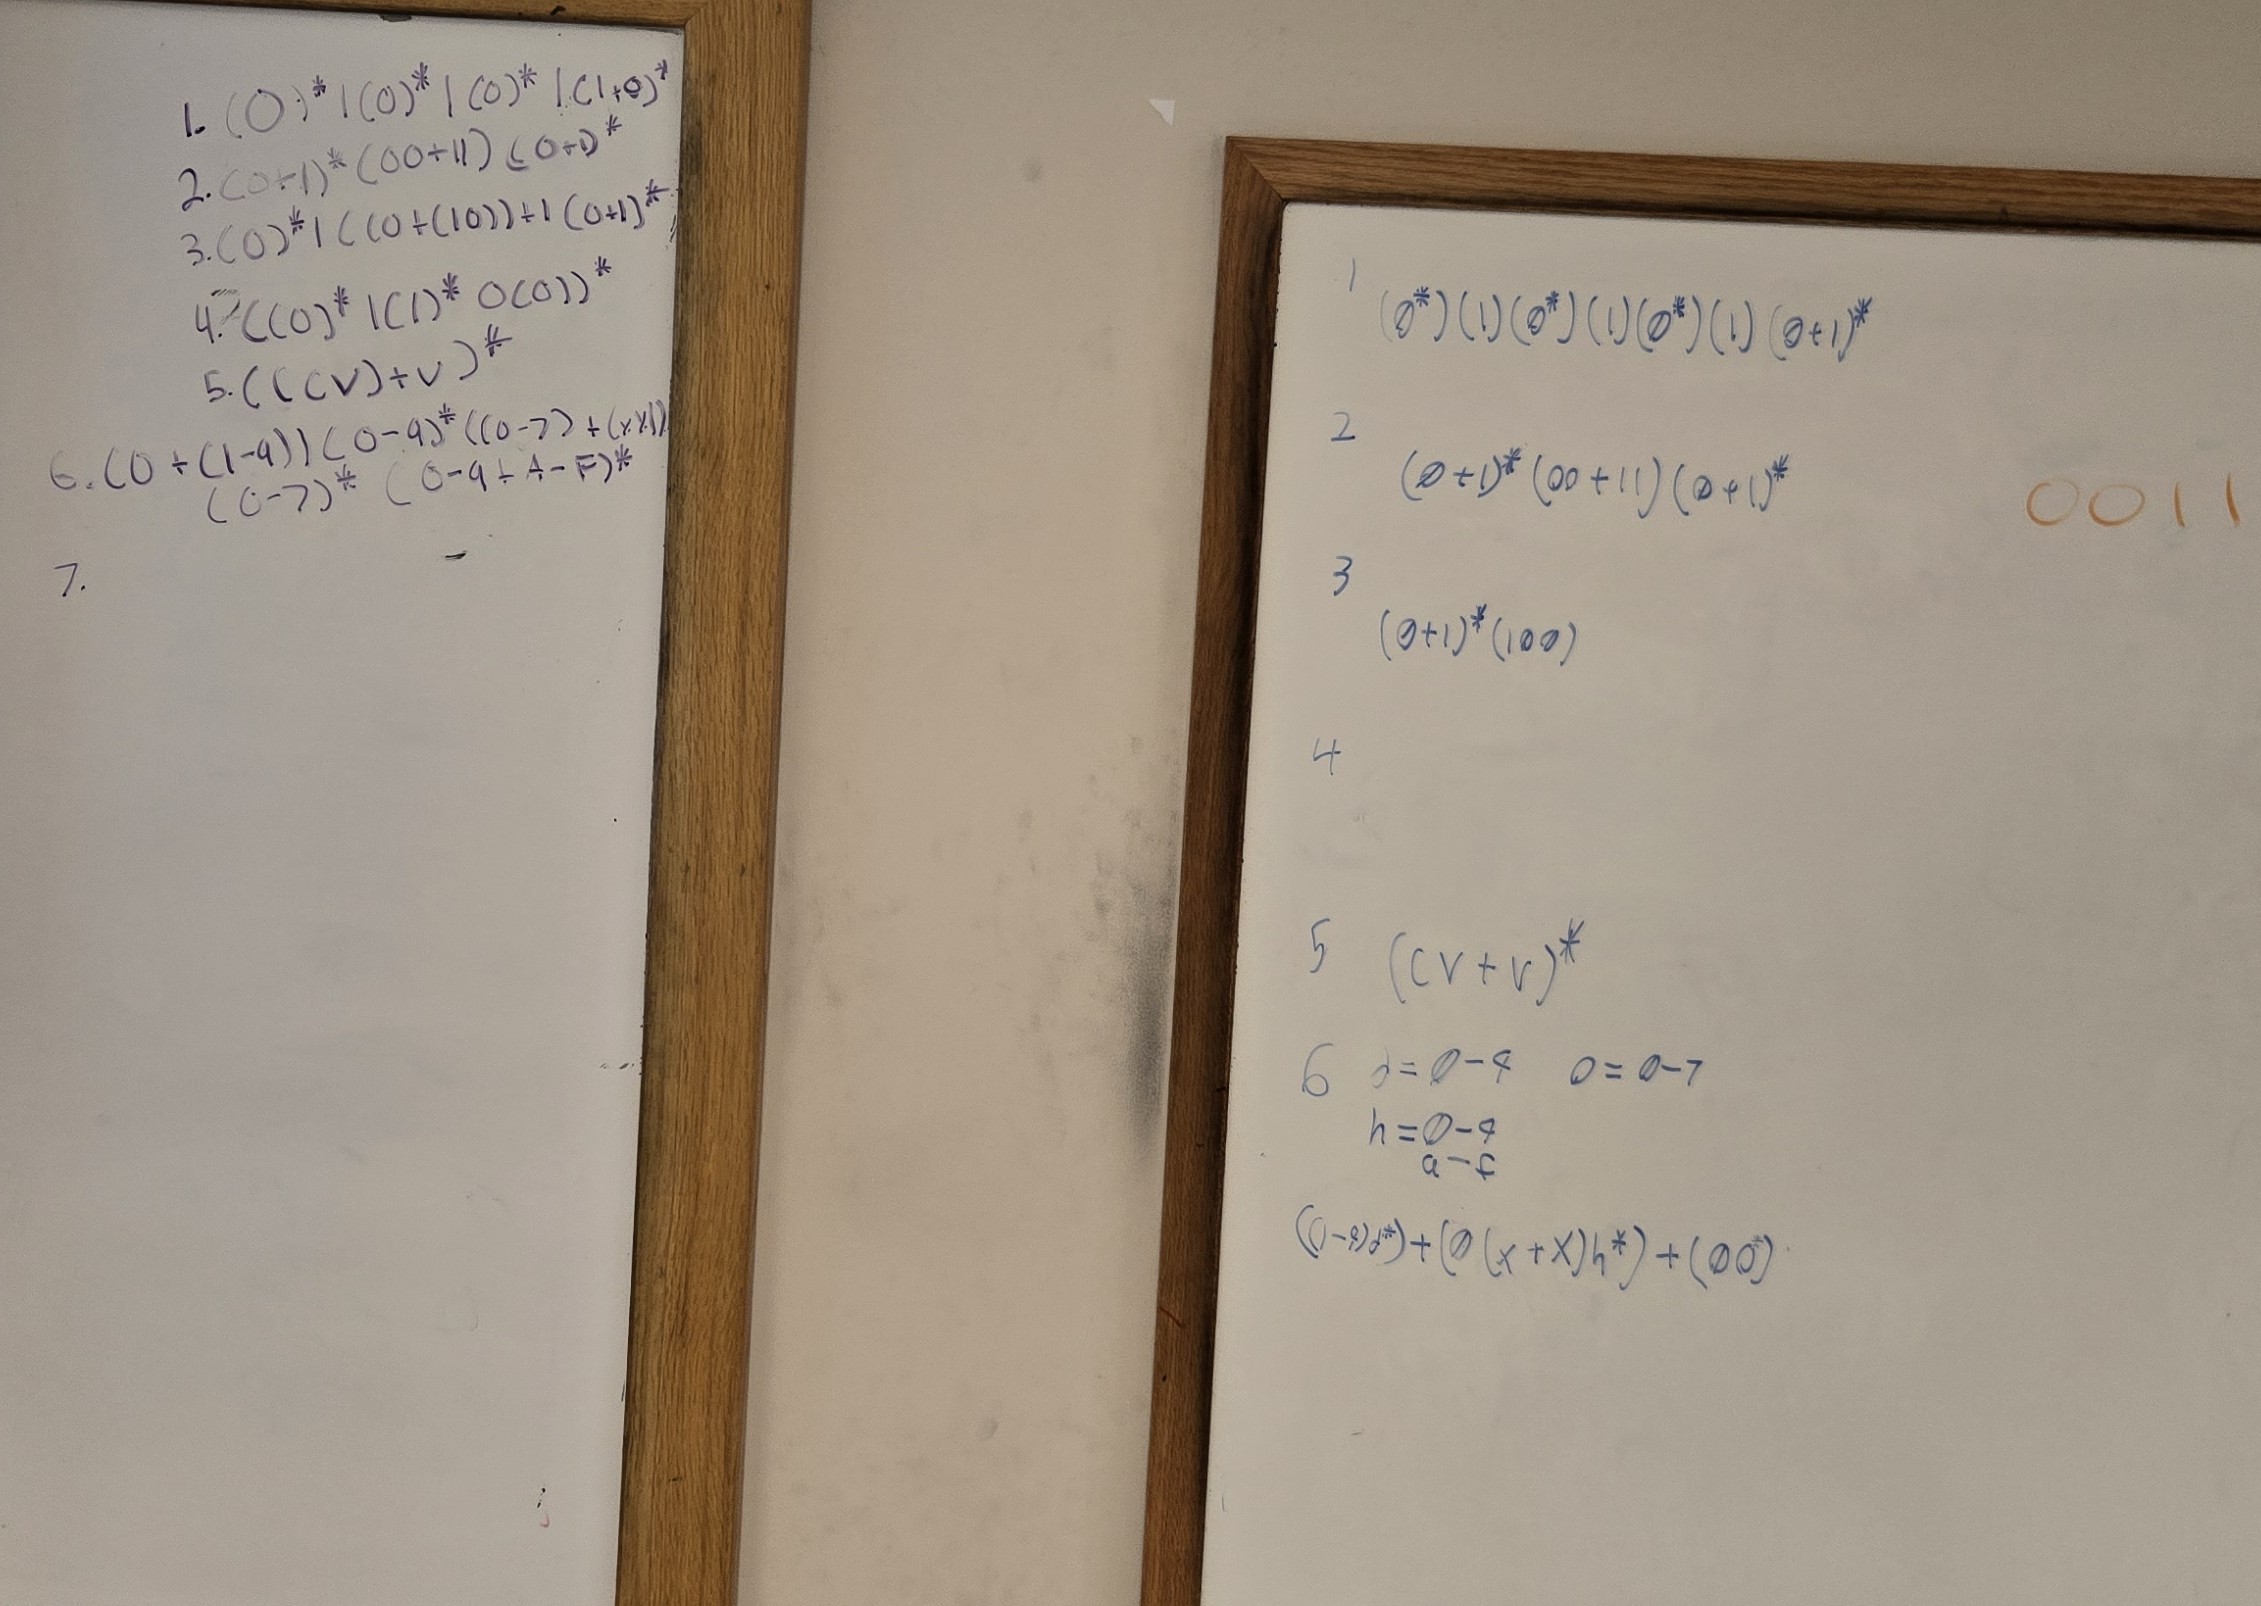 1. (0)*1(0)*1(0)*1(1+0)*
2. (0+1)*(00+11)(0+1)*
3. (0)*1((0+(10))+1(0+1)*
4. ((0)*1(1)*0(0))*
5. (((CV)+V)*
6. (0+(1-9))(0-9)*((0-7)+(xX))
(0-7)* (0-9+A-F)*
7.
1
(0*)(1)(0*)(1)(0*)(1)(0+1)*
2
(0+1)*(00+11)(0+1)*
0011
3
(0+1)*(100)
4
5 (CV+V)*
6 d=0-9 0=0-7
h=0-9
a-f
((1-9)d*)+(0(x+X)h*)+(00*)